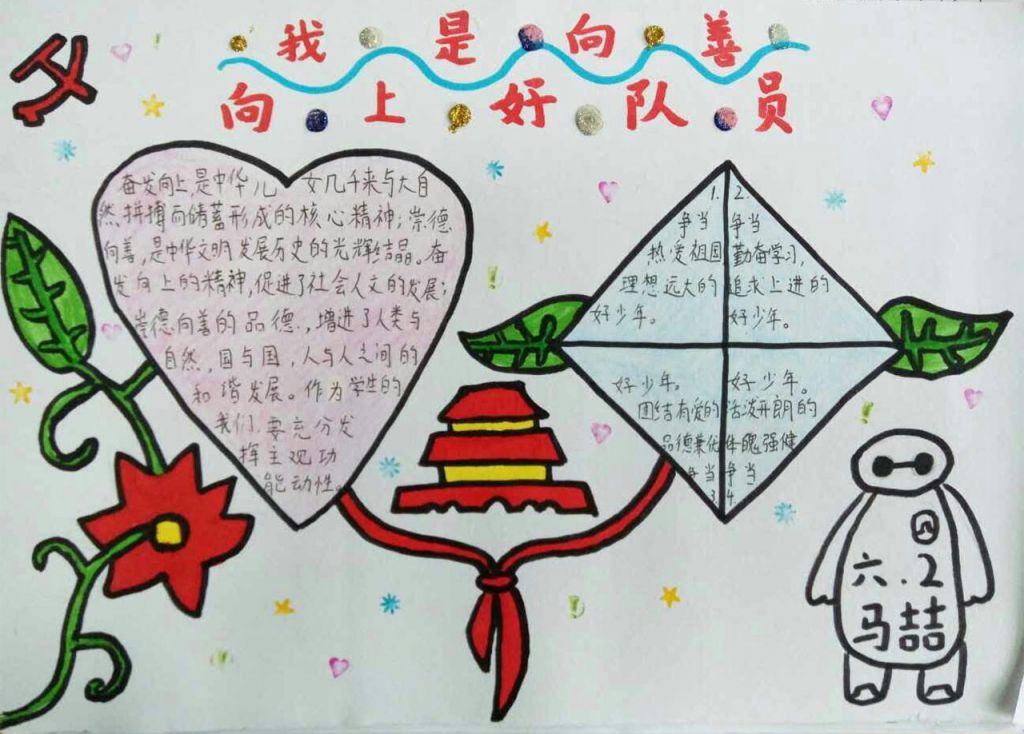 我是向善
向上好队员
奋发向上是中华儿女几千来与大自
然拼搏而储蓄形成的核心精神；崇德
向善，是中华文明发展历史的光辉结晶。奋
发向上的精神，促进了社会人文的发展；
崇德向善的品德，增进了人类与
自然，国与国，人与人之间的
和谐发展。作为学生的
我们，要充分发
挥主观功
能动性。
1.
争当
热爱祖国
理想远大的
好少年。
2.
争当
勤奋学习，
追求上进的
好少年。
好少年。
团结有爱的
品德兼优
争当
3.
好少年。
活泼开朗的
体魄强健
争当
4.
六.2
马喆